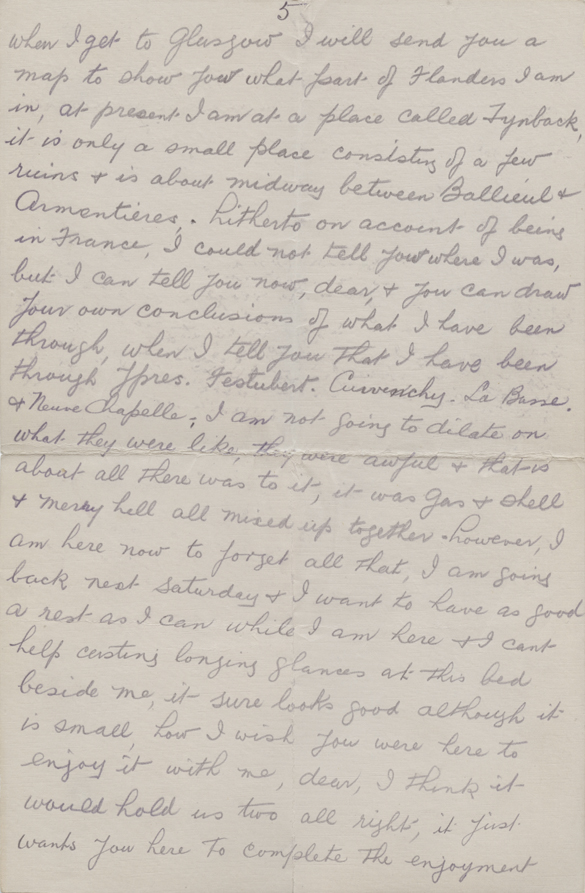 5
when I get to Glasgow I will send you a
map to show you what part of Flanders I am
in, at present I am at a place called Fynback,
it is only a small place consisting of a few
ruins & is about midway between Ballieul &
Armentières, . hitherto on account of being
in France, I could not tell you where I was,
but I can tell you now, dear, & you can draw
your own conclusions of what I have been
through, when I tell you that I have been
through Ypres. Festubert. Cuivinchy. La Basse.
& Neuve Chapelle, I am not going to dilate on
what they were like, they were awful & that is
about all there was to it, it was gas & shell
& merry hell all mixed up together. however, I
am here now to forget all that, I am going
back next Saturday & I want to have as good
a rest as I can while I am here & I cant
help casting longing glances at this bed
beside me, it sure looks good although it
is small, how I wish you were here to
enjoy it with me, dear, I think it
would hold us two all right, it just
wants you here to complete the enjoyment